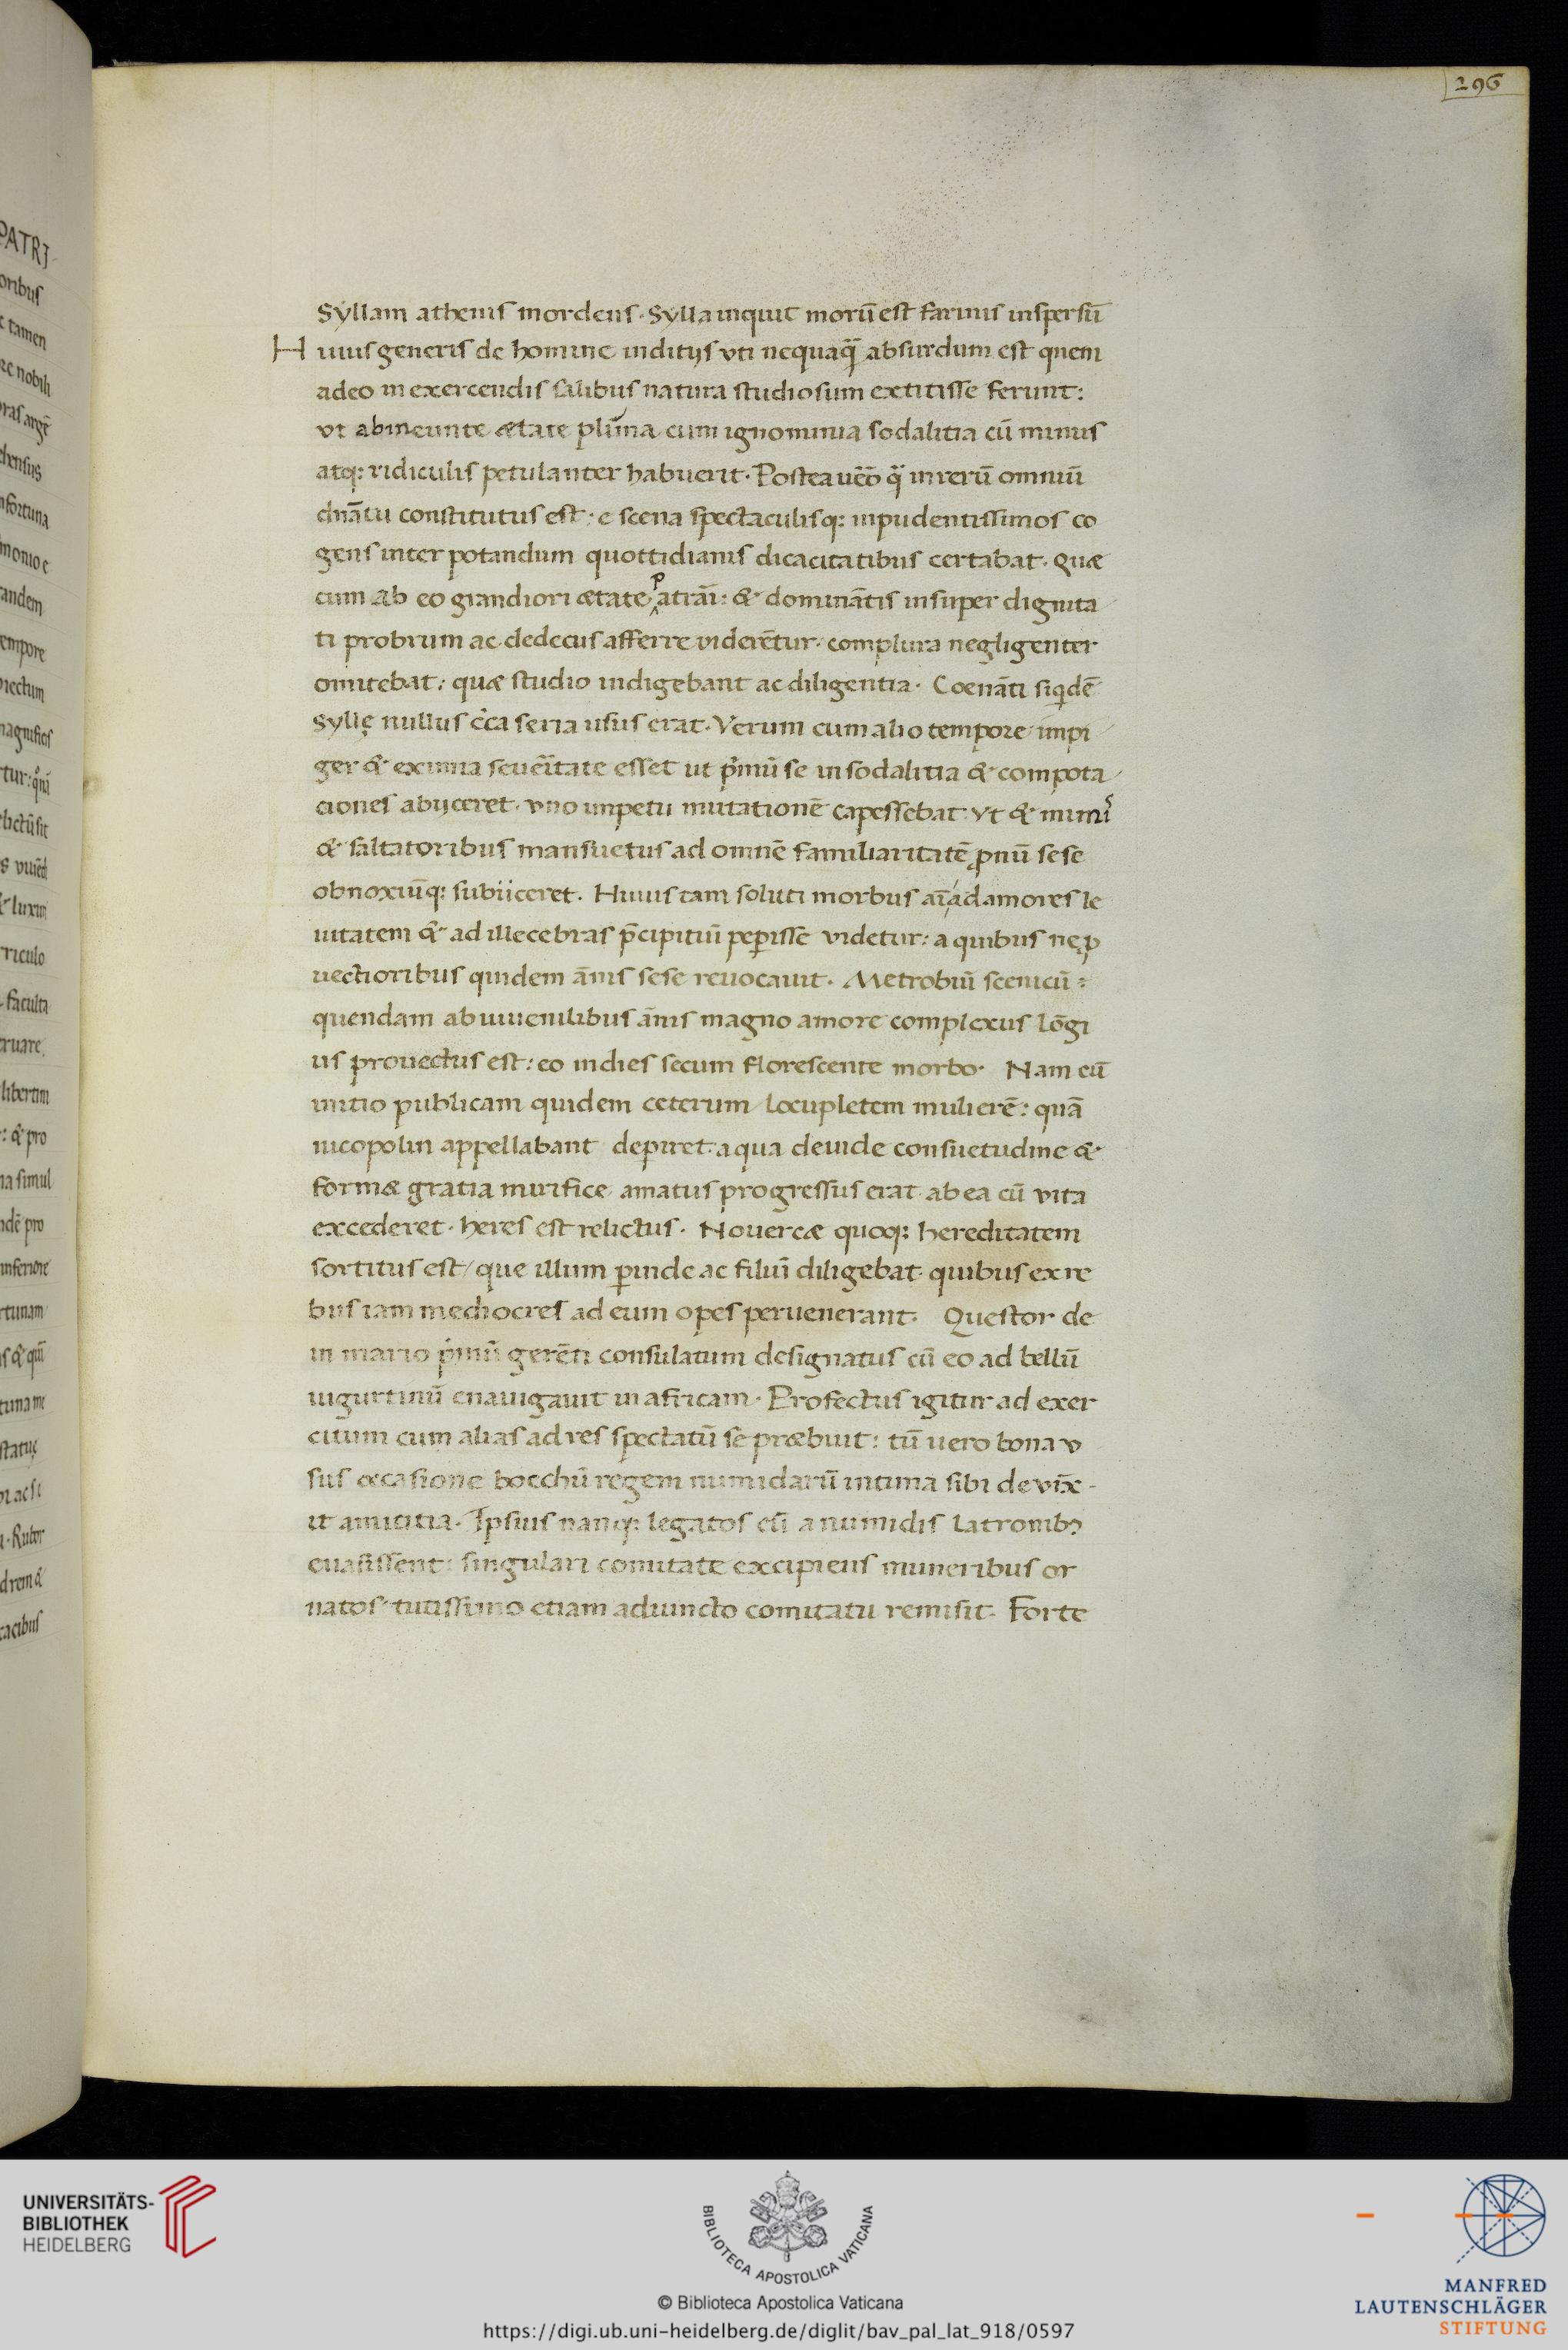 296
Syllam athenis mordens. Sylla inquit morū est farinis inspersū
Huius generis de homine inditijs vti nequaq̄ absurdum est quem
adeo in exercendis salibus natura studiosum extitisse ferunt:
vt ab ineunte ætate plurīa cum ignominia sodalitia cū mimis
atq: ridiculis petulanter habuerit. Postea uēo q̄ in rerū omniū
dnātu constitutus est: e scena spectaculisq: inpudentissimos co
gens inter potandum quottidianis dicacitatibus certabat. Quæ
cum ab eo grandiori ætate patrāī: & dominātis insuper dignita
ti probrum ac dedecus afferre viderētur. complura negligenter
omittebat: quæ studio indigebant ac diligentia. Coenāti siqdē
Syllę nullus c̄ca seria usus erat. Verum cum alio tempore impi
ger & eximia seuēitate esset ut p̄mū se in sodalitia & compota
ciones abijceret. vno impetu mutationē capessebat: vt & mimī
& saltatoribus mansuetus ad omnē familiaritatē ꝓnū sese
obnoxiūq: subiiceret. Huius tam soluti morbus aī ad amores le
uitatem & ad illecebras p̄cipitiū peperisse videtur: a quibus ne ꝓ
uectioribus quidem ānis sese reuocauit. Metrobiū scenicū
quendam ab iuuenilibus ānis magno amore complexus lōgi
us prouectus est: eo indies secum florescente morbo. Nam cū
initio publicam quidem ceterum locupletem mulierē: quā
nicopolin appellabant depiret: a qua deinde consuetudine &
formæ gratia mirifice amatus progressus erat ab ea cū vita
excederet. heres est relictus. Nouercæ quoq: hereditatem
sortitus est/que illum perinde ac filiū diligebat. quibus ex re
bus iam mediocres ad eum opes peruenerant. Questor de
in mario p̄mū gerēti consulatum designatus cū eo ad bellū
iugurtinū enauigauit in africam. Profectus igitur ad exer
citum cum alias ad res spectatū se præbuit: tū uero bona v
sus occasione bocchū regem numidarū intima sibi devīx-
it amicitia. Ipsius nanq: legatos cū a numidis latronibꝰ
euasissent: singulari comitate excipiens muneribus or
natos tutissimo etiam adiuncto comitatu remisit. Forte
PATRI
oribus
tamen
re nobili
fortuna
andem
empore
rectum
magnifices
libertini
: & pro
na simul
inferiore
rtunam
tuna me
cacibus
UNIVERSITÄTS-
BIBLIOTHEK
HEIDELBERG
BIBLIOTECA APOSTOLICA VATICANA
© Biblioteca Apostolica Vaticana
https://digi.ub.uni-heidelberg.de/diglit/bav_pal_lat_918/0597
MANFRED
LAUTENSCHLÄGER
STIFTUNG